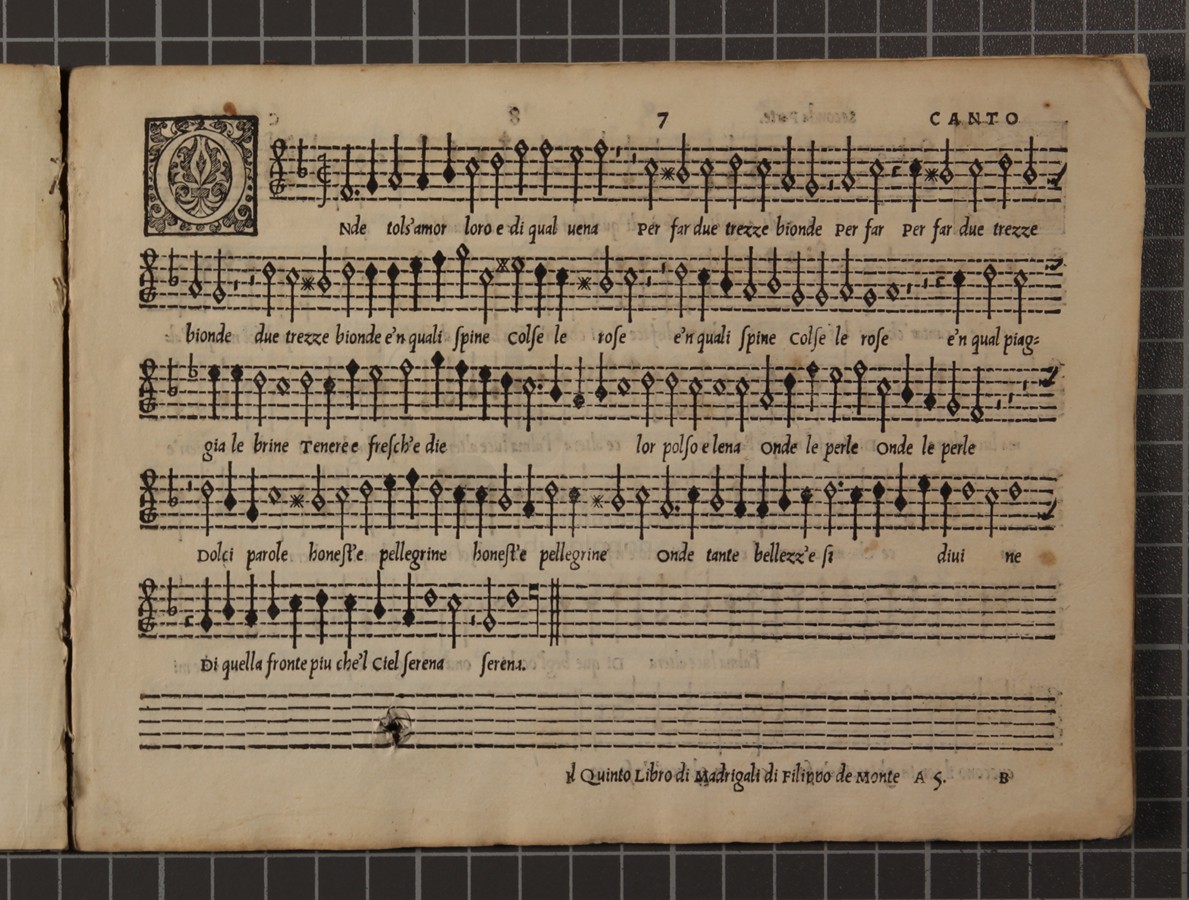 7 CANTO
ONde tols'amor loro e di qual uena Per far due trezze bionde Per far Per far due trezze
bionde due trezze bionde e'n quali ſpine Colſe le roſe e'n quali ſpine Colſe le roſe e'n qual piag=
gia le brine Tenere e freſch'e die lor polſo e lena Onde le perle Onde le perle
Dolci parole honeſt'e pellegrine honeſt'e pellegrine Onde tante bellezz'e ſi diui ne
Di quella fronte piu che'l Ciel ſerena ſerena.
Il Quinto Libro di Madrigali di Filippo de Monte A 5. B